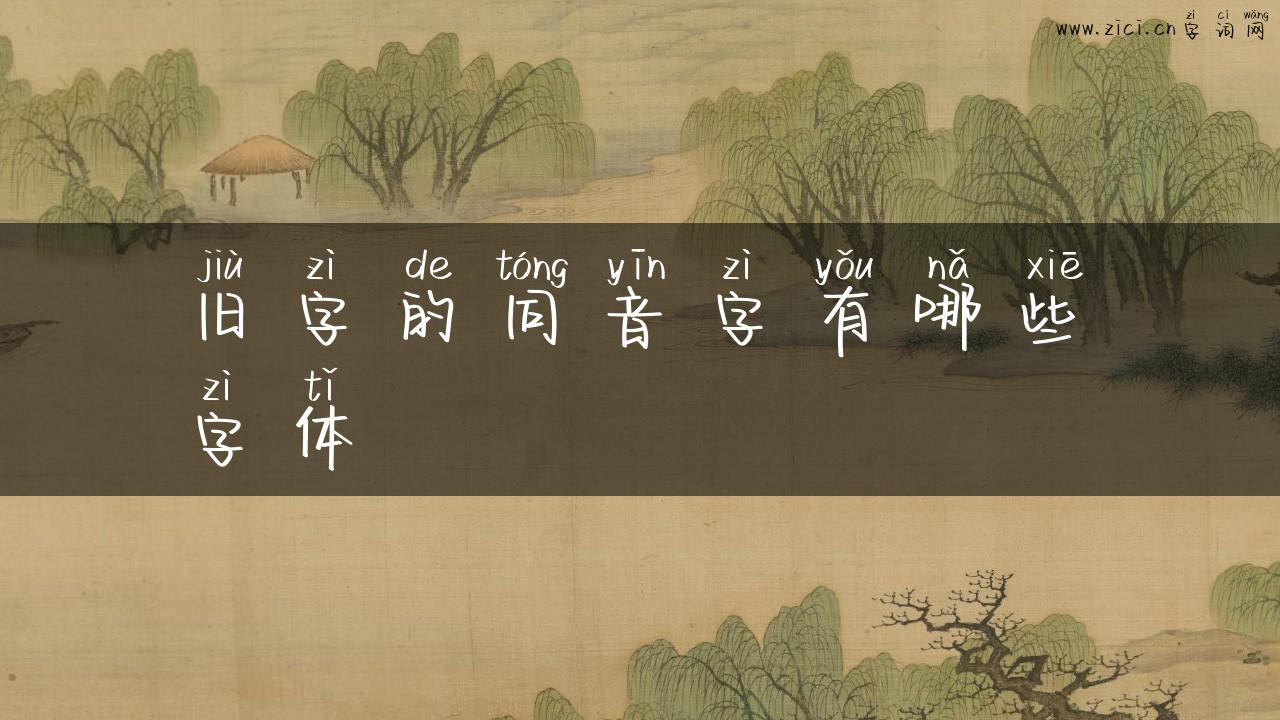 zì cí wǎng
www.zici.cn 字词网
jiù zì de tóng yīn zì yǒu nǎ xiē
旧字的同音字有哪些
zì tǐ
字体